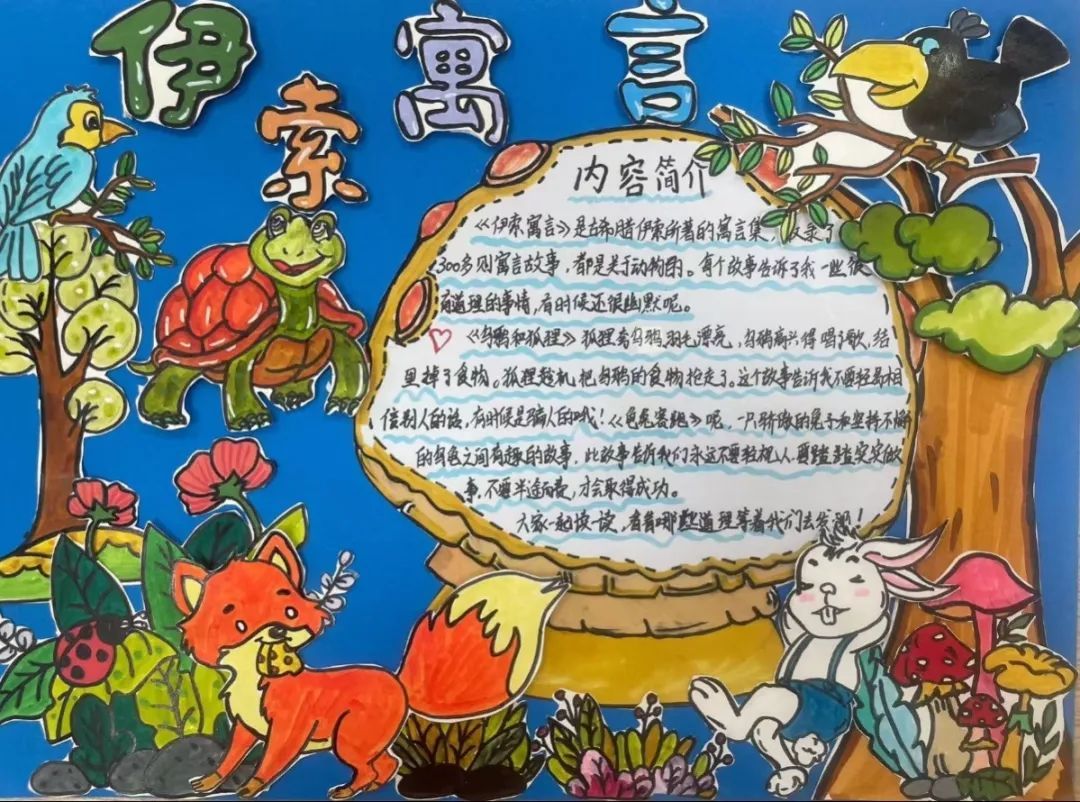 伊索寓言
内容简介
《伊索寓言》是古希腊伊索所著的寓言集，收录了
300多则寓言故事，都是关于动物的。每个故事告诉了我一些很
有道理的事情，有时候还很幽默呢。
《乌鸦和狐狸》狐狸夸乌鸦羽毛漂亮，乌鸦高兴得唱了歌，结
果掉了食物。狐狸趁机把乌鸦的食物抢走了。这个故事告诉我不要轻易相
信别人的话，有时候是骗人的哦！《龟兔赛跑》呢，一只骄傲的兔子和坚持不懈
的乌龟之间有趣的故事，此故事告诉我们永远不要轻视人，要踏踏实实做
事，不要半途而废，才会取得成功。
大家一起读一读，看有哪些道理等着我们去发现！